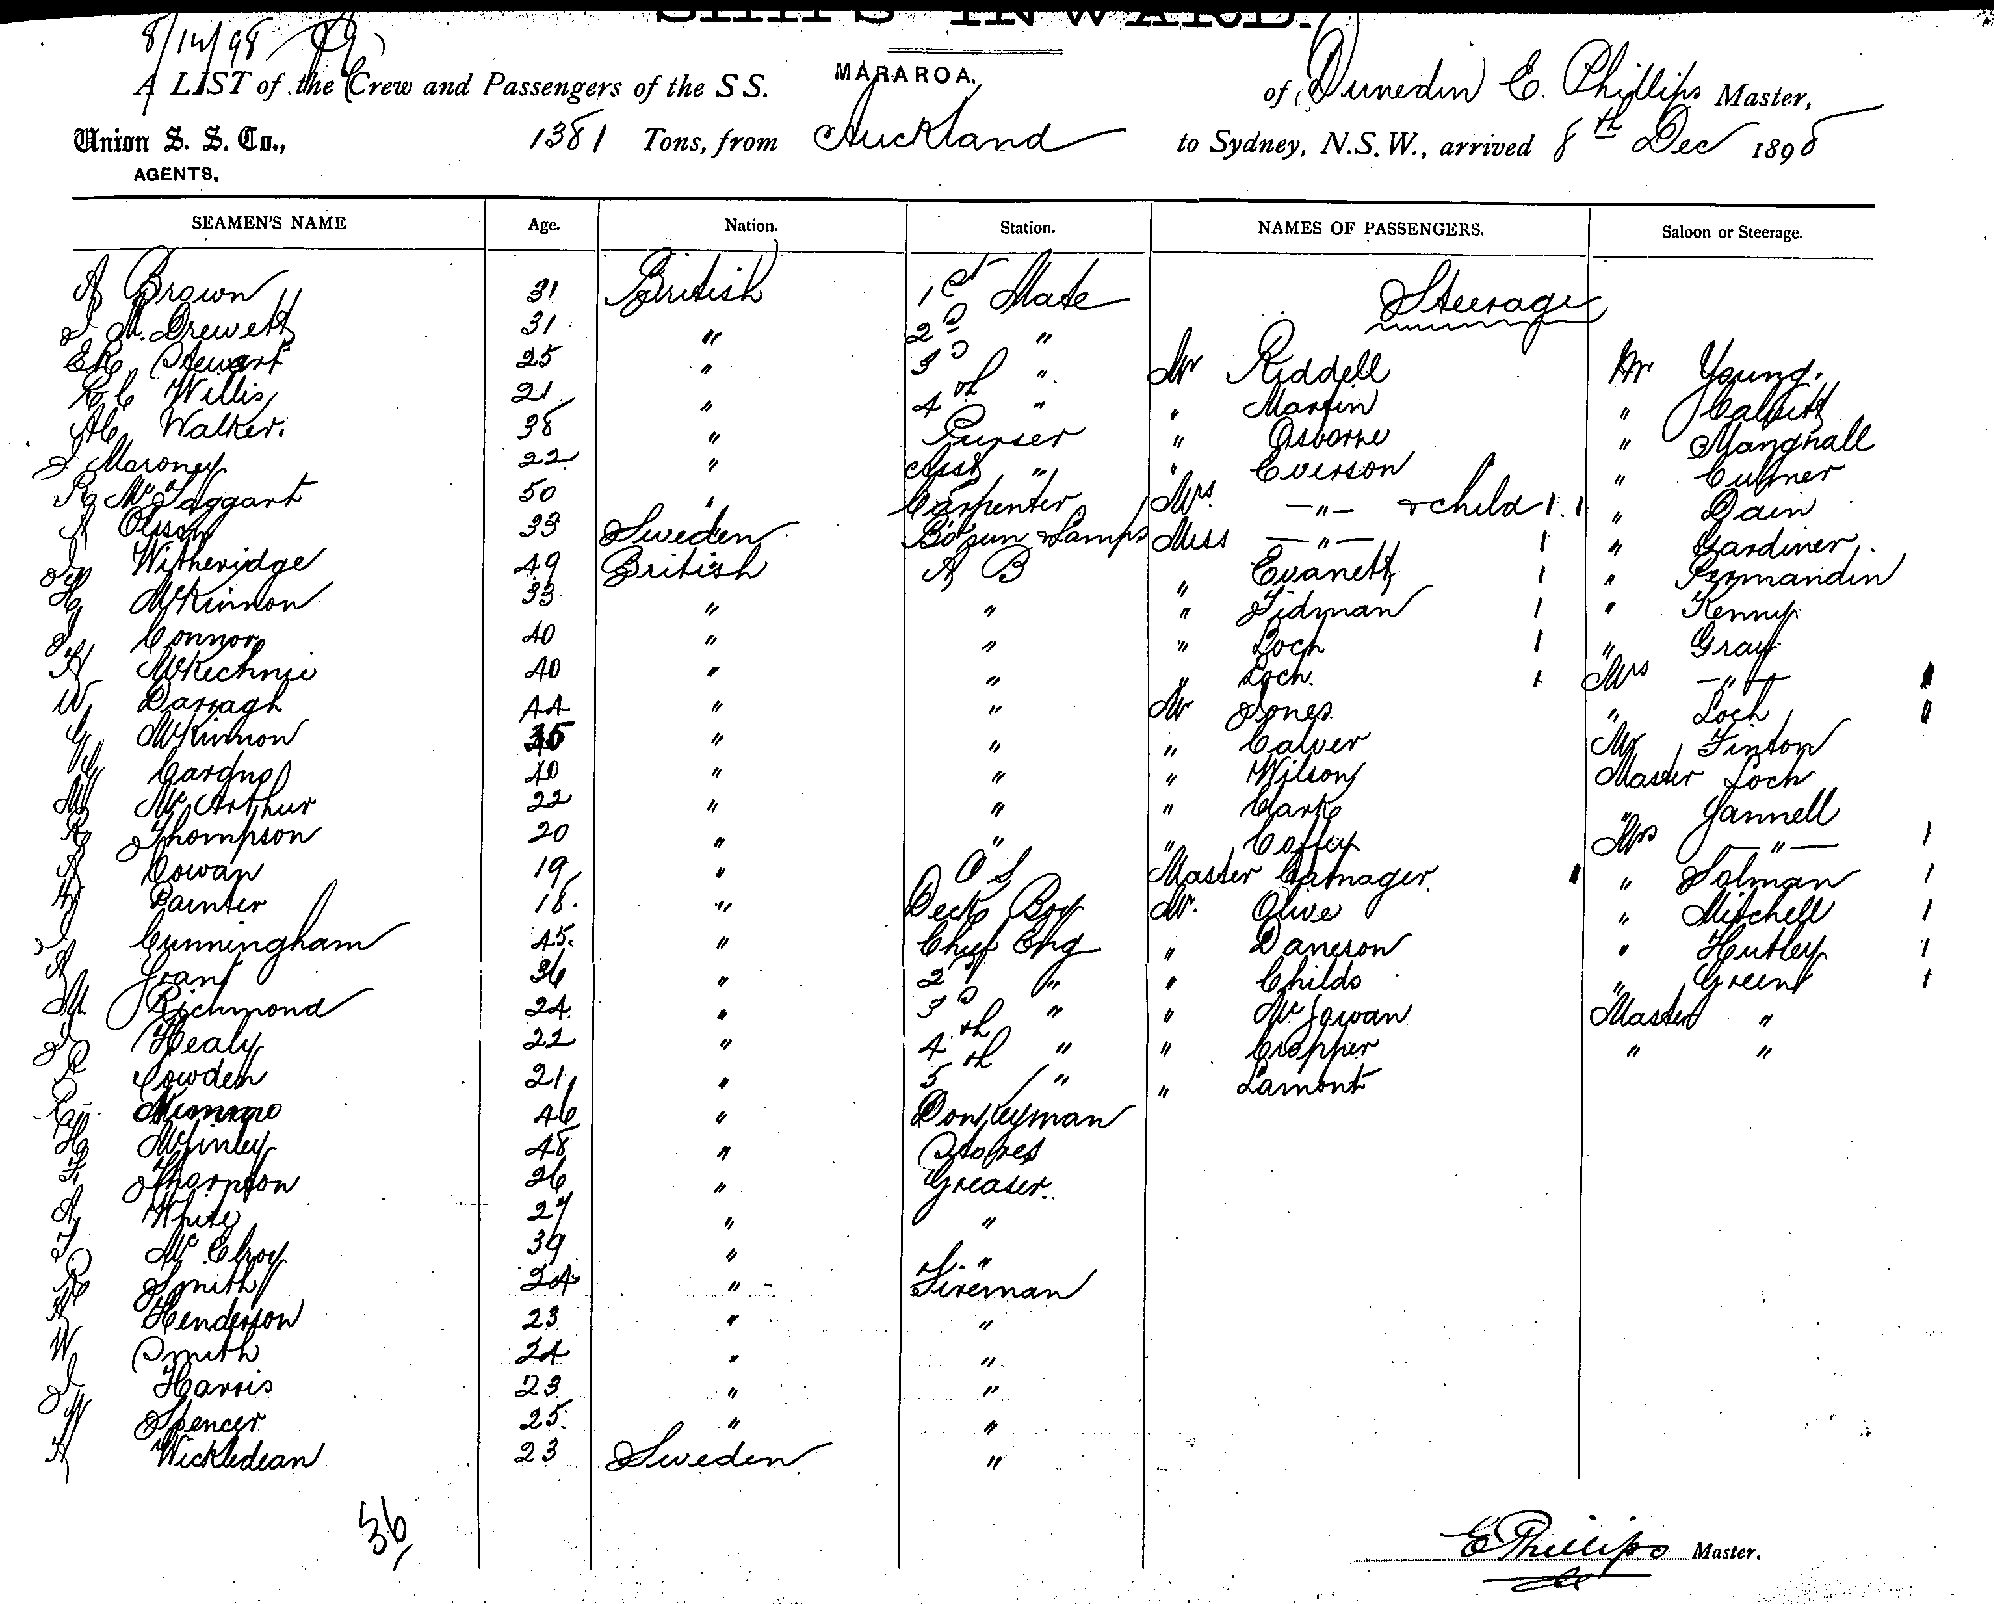 SHIPS INWARD.
8/12/98
A LIST of the Crew and Passengers of the S S. MARAROA. of Dunedin E. Phillips Master,
Union S. S. Co., 1381 Tons, from Auckland to Sydney, N.S.W., arrived 8th Dec 1898
AGENTS,
SEAMEN'S NAME Age. Nation. Station. NAMES OF PASSENGERS. Saloon or Steerage.
A Brown 31 British 1st Mate Steerage
J. M. Drewett 31 " 2D "
Stewart 25 " 3D " Mr Riddell Mr Young.
Willis 21 " 4th " " Martin "
Walker. 38 " Purser " Osborne " Mangnall
J Maroney 22 " Asst " " Everson "
R McTaggart 50 " Carpenter Mrs. — " — & child 1. 1 " Dain
A Olsson 33 Sweden Bosun & Lamps Miss — " — 1 " Gardiner.
J Witheridge 49 British A B " Evanett 1 "
H McKinnon 33 " " " Tidman 1 " Kenny
J Connor 40 " " " Loch 1 " Gray
A McKechnie 40 " " " Loch. 1 Mrs — " — 1
W Darragh 44 " " Mr Jones " Loch 1
G McKinnon 35 " " " Calver Mr Finton
40 " " " Wilson Master Loch
M McArthur 22 " " " Clark " Jannell
R Thompson 20 " " " Coffey Mrs — " — 1
A Cowan 19 " O S Master 1 " Solman 1
H Painter 18. " Deck Boy Mr. Olive " Mitchell 1
J Cunningham 45. " Chief Eng " Daneson " Hutley 1
A Grant 36 " 2D " " Childs " Green 1
Richmond 24 " 3D " " McGowan Master "
J Healy 22 " 4th " " Cropper " "
R Cowden 21 " 5th " " Lamont
Munro 46 " Donkeyman
H McGinley 48 " Stores
F Thompson 26 " Greaser.
A White 27 " "
J McElroy 39 " "
R Smith 24 " Fireman
A Henderson 23 " "
W Smith 24 " "
J Harris 23 " "
W Spencer 25. " "
A Wickledean 23 Sweden "
36
E Phillips Master.